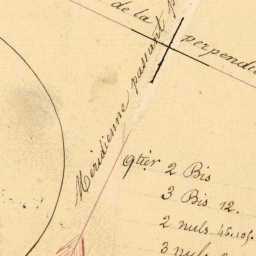 de la
perpendic
Méridienne passant p
qtier 2 Bis
3 Bis 12.
2 nuls 45.
3 nuls